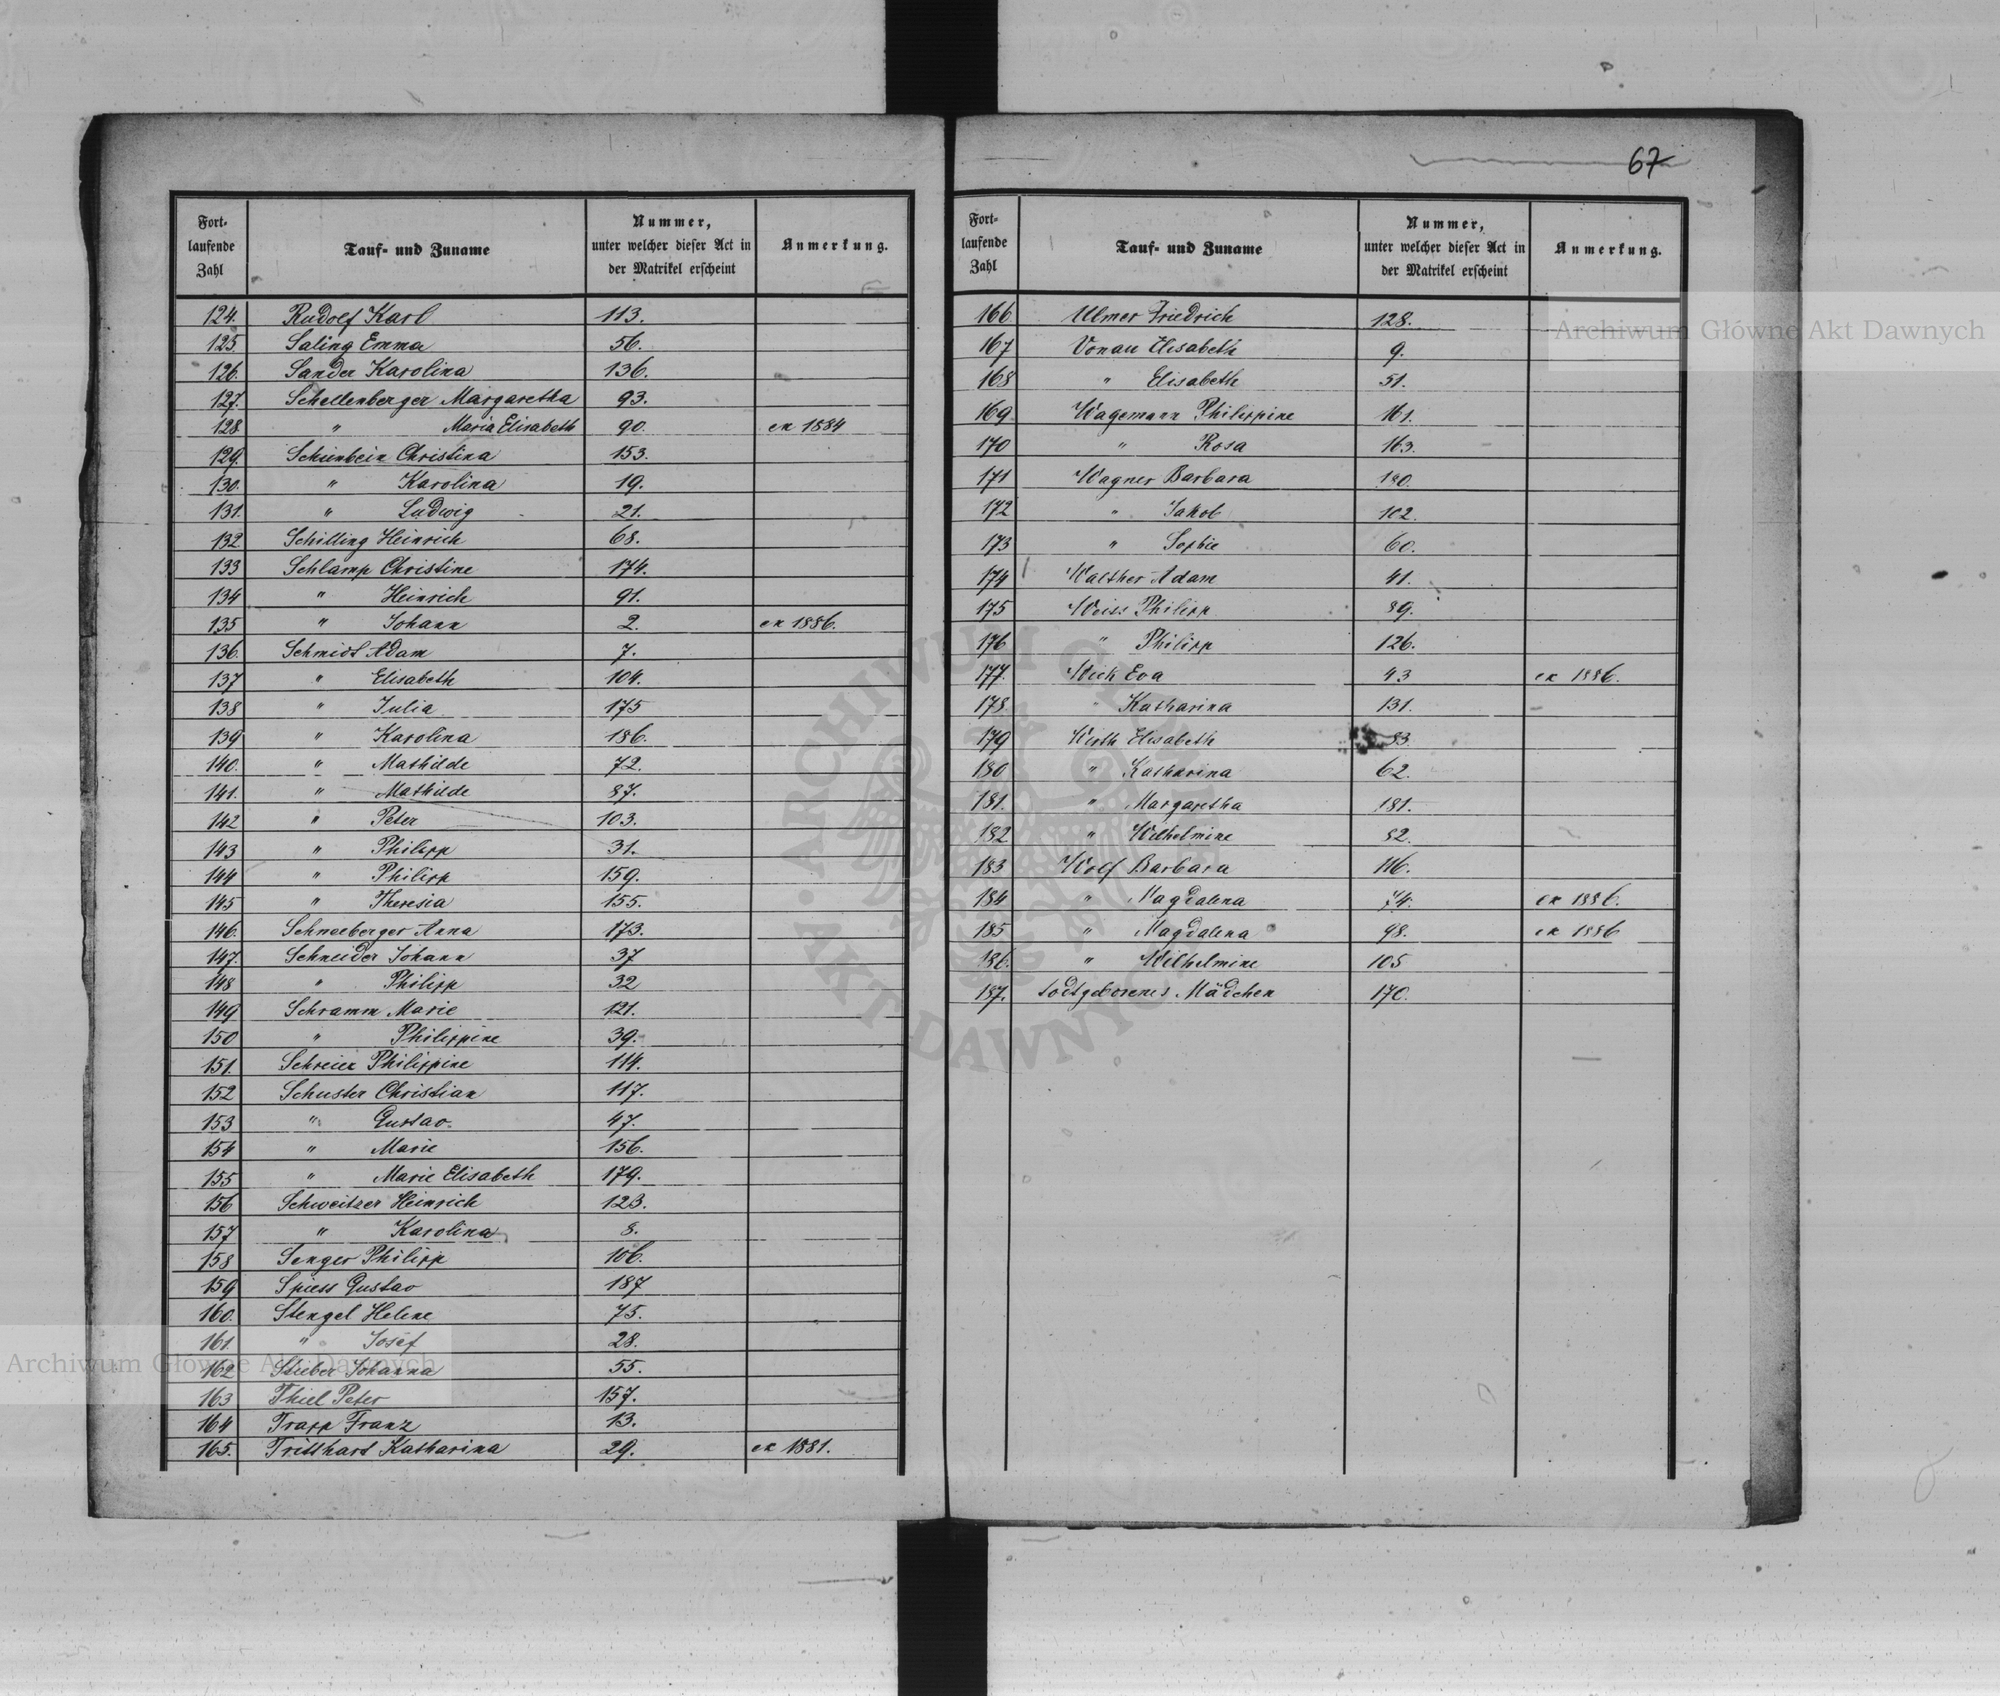 67
Fort-laufende Zahl Tauf- und Zuname Nummer, unter welcher dieser Act in der Matrikel erscheint Anmerkung.
124. Rudolf Karl 113.
125. Saling Emma 56.
126. Sander Karolina 136.
127. Schellenberger Margaretha 93.
128. " Maria Elisabeth 90. ex 1884
129. Scheinbein Christina 153.
130. " Karolina 19.
131. " Ludwig 21.
132 Schilling Heinrich 68.
133 Schlamp Christine 174.
134 " Heinrich 91.
135 " Johann 2. ex 1886.
136. Schmidt Adam 7.
137 " Elisabeth 104.
138 " Julia 175
139 " Karolina 186.
140. " Mathilde 72.
141. " Mathilde 87.
142 " Peter 103.
143 " Philipp 31.
144 " Philipp 159.
145 " Theresia 155.
146. Schneeberger Anna 173.
147. Schneider Johann 37
148 " Philipp 32
149 Schramm Marie 121.
150 " Philippine 39.
151. Schreier Philippine 114.
152 Schuster Christian 117.
153 " Gustav. 47.
154 " Marie 156.
155 " Marie Elisabeth 179.
156 Schweitzer Heinrich 123.
157 " Karolina 8.
158 Senger Philipp 106.
159 Spiess Gustav 187
160. Stengel Helene 75.
161. " Josef 28.
162 Stieber Johanna 55.
163 Thiel Peter 157.
164 Trapp Franz 13.
165. Tritthart Katharina 29. ex 1881.
Fort-laufende Zahl Tauf- und Zuname Nummer, unter welcher dieser Act in der Matrikel erscheint Anmerkung.
166 Ulmer Friedrich 128.
167 Vonau Elisabeth 9.
168 " Elisabeth 51.
169. Wagemann Philippine 161.
170 " Rosa 163.
171 Wagner Barbara 180.
172 " Jakob 102.
173 " Sophie 60.
174 Walther Adam 41.
175 Weiss Philipp 89.
176 " Philipp 126.
177. Wick Eva 43 ex 1886.
178. " Katharina 131.
179 Wirth Elisabeth 83.
180 " Katharina 62.
181. " Margaretha 181.
182 " Wilhelmine 82.
183 Wolf Barbara 116.
184 " Magdalena 74. ex 1886.
185 " Magdalena 98. ex 1886
186. " Wilhelmine 105
187. Todtgeborenes Mädchen 170.
Archiwum Główne Akt Dawnych
Archiwum Główne Akt Dawnych
ARCHIWUM GŁÓWNE · AKT DAWNYCH ·